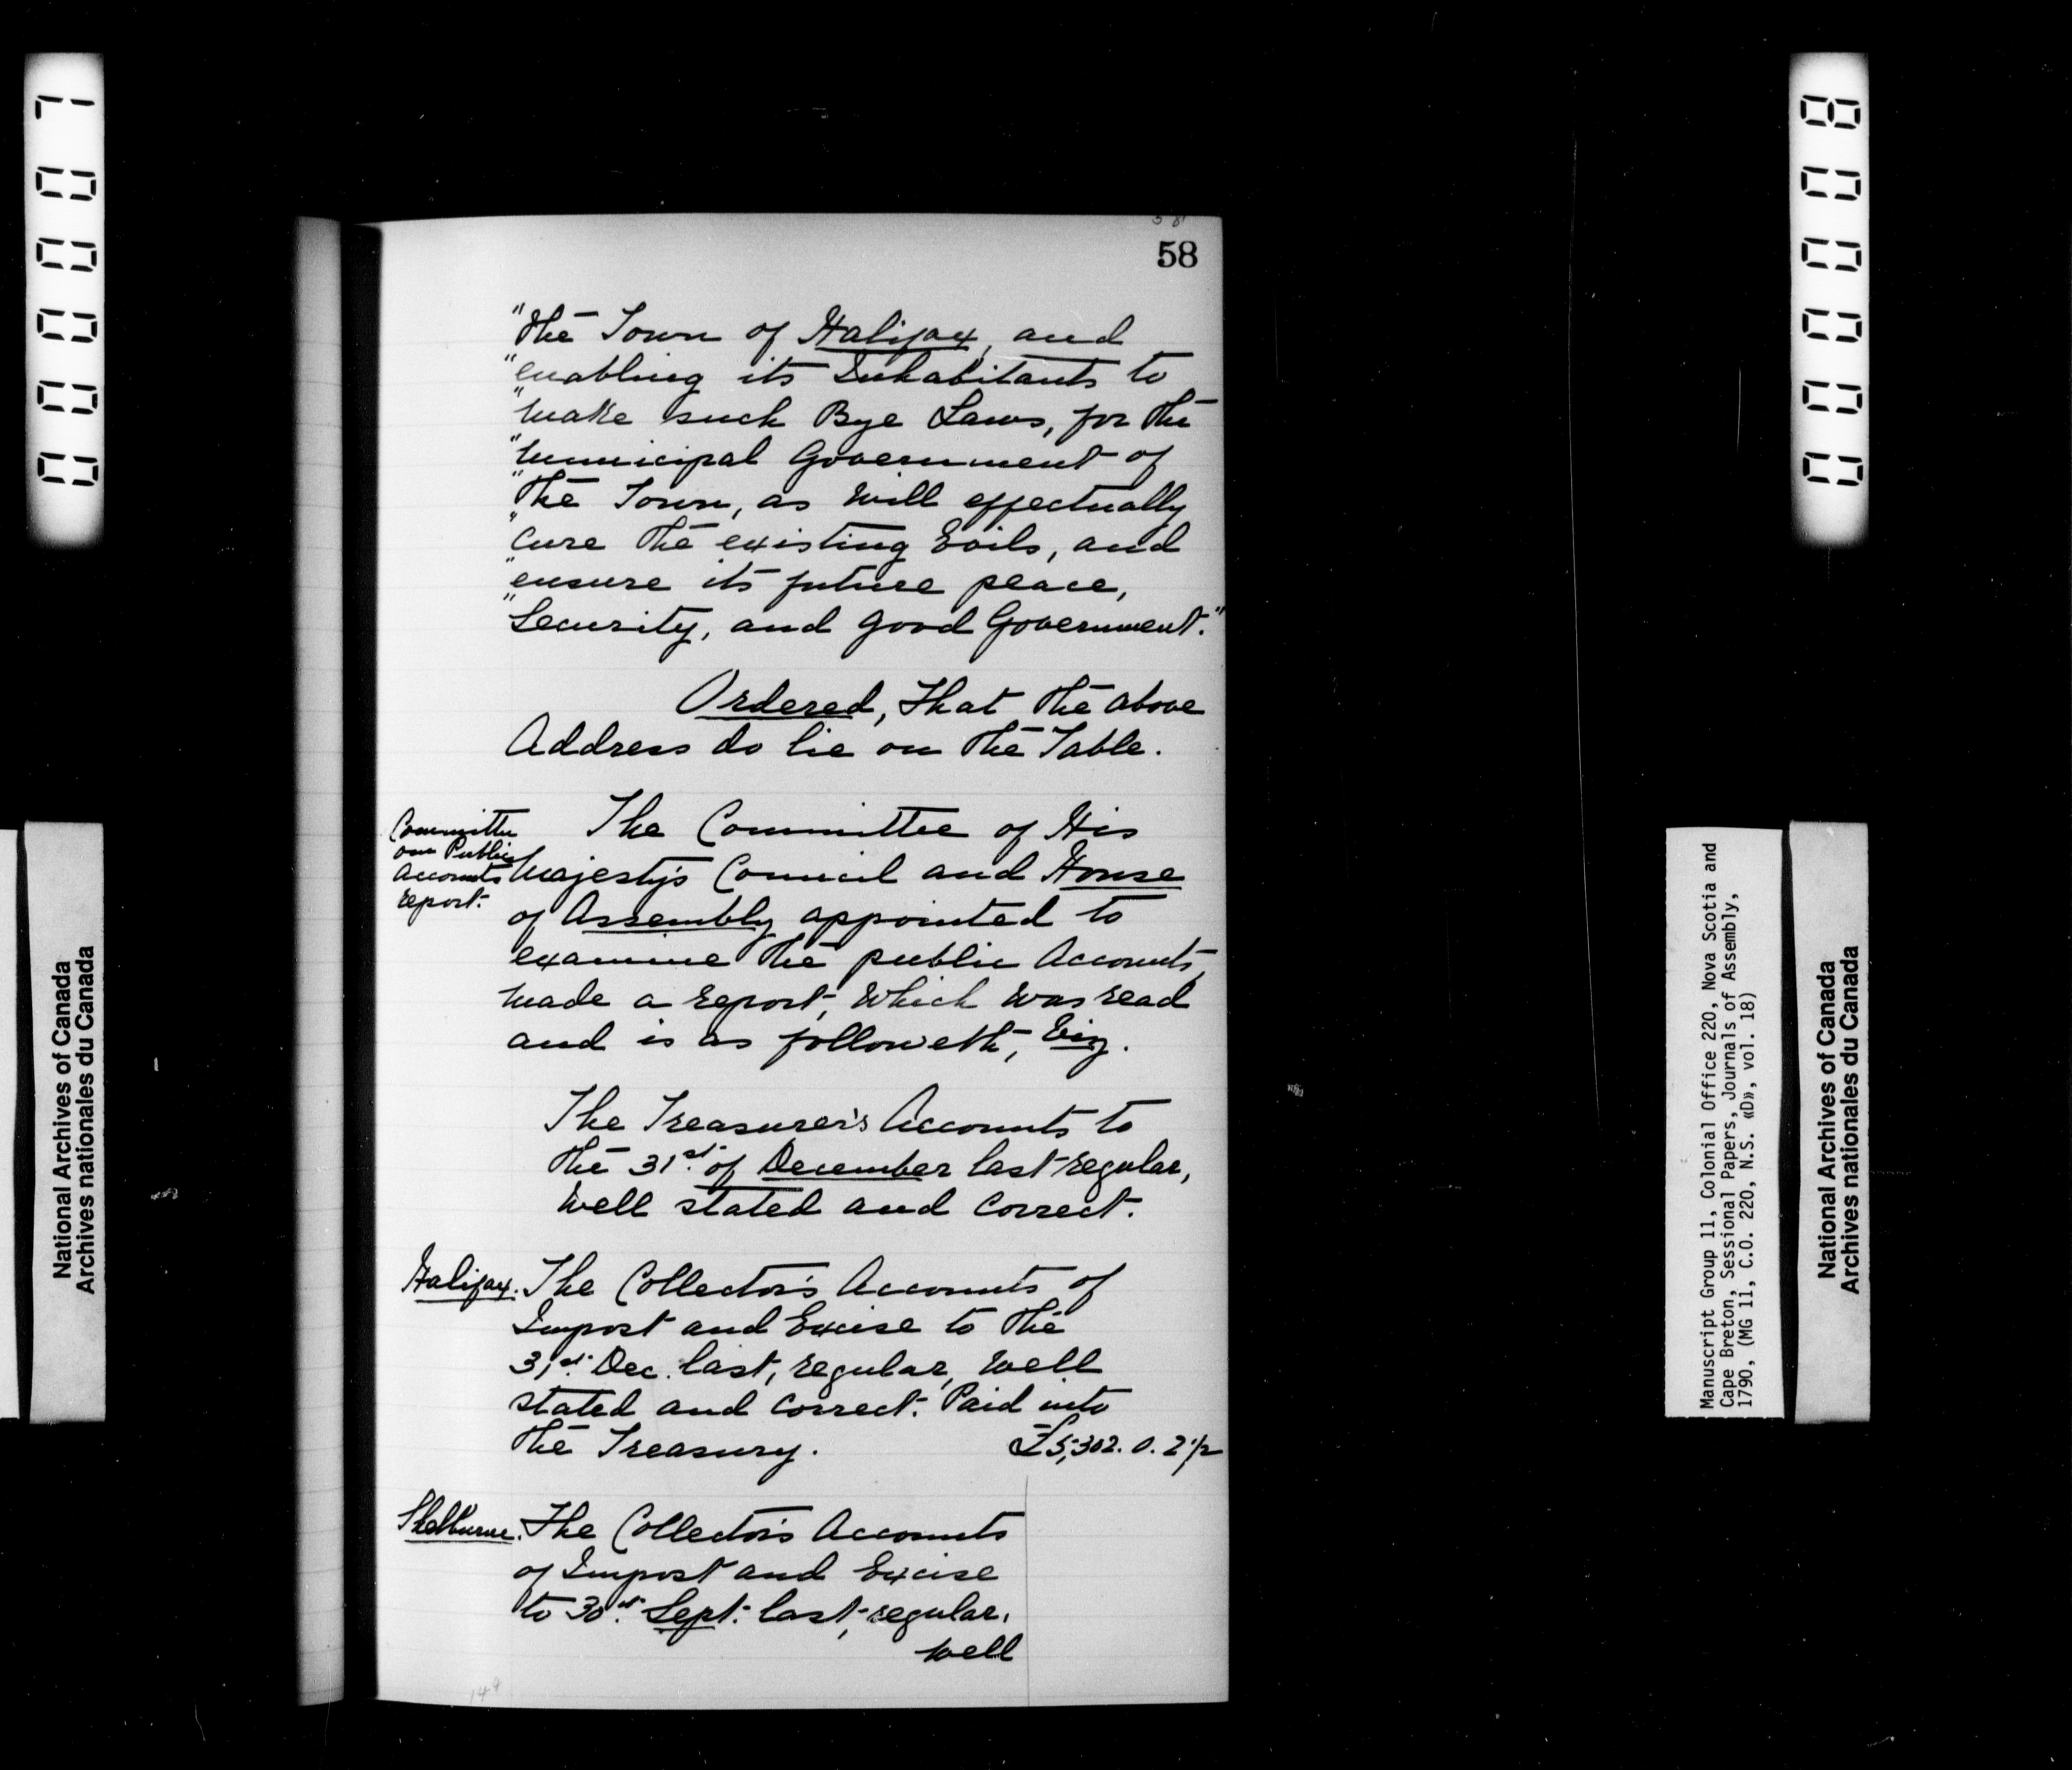 58
"the Town of Halifax, and
"enabling its Inhabitants to
"make such Bye Laws, for the
"municipal Government of
"the Town, as will effectually
"cure the existing Evils, and
"ensure its future peace,
"Security, and good Government."
Ordered, That the above
Address do lie on the Table.
Committee
on Public
Accounts
report.
The Committee of His
Majesty's Council and House
of Assembly appointed to
examine the public Accounts,
made a report, which was read
and is as followeth, Viz.
The Treasurer's Accounts to
the 31st. of December last regular,
well stated and correct.
Halifax. The Collector's Accounts of
Impost and Excise to the
31st. Dec. last, regular, well
stated and correct. Paid into
the Treasury. £5,302. 0. 2 1/2
Shelburne. The Collector's Accounts
of Impost and Excise
to 30st. Sept. last, regular,
well
000007
National Archives of Canada
Archives nationales du Canada
000008
Manuscript Group 11, Colonial Office 220, Nova Scotia and
Cape Breton, Sessional Papers, Journals of Assembly,
1790, (MG 11, C.O. 220, N.S. «D», vol. 18)
National Archives of Canada
Archives nationales du Canada